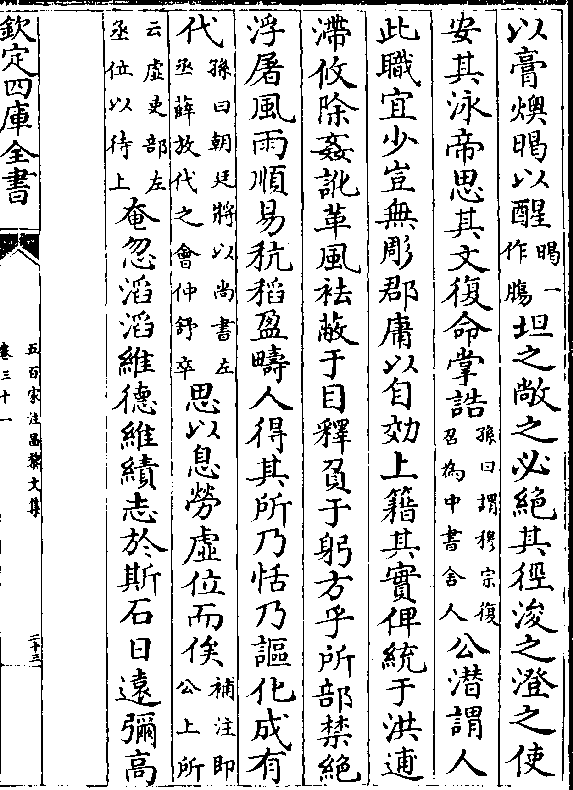 以膏燠暍以醒暍一作腸坦之敞之必絶其徑浚之澄之使
安其泳帝思其文復命掌誥孫曰謂穆宗復召為中書舍人公潛謂人
此職宜少豈無彫郡庸以自効上籍其實俾統于洪逋
滯攸除姦訛革風祛蔽于目釋負于躬方乎所部禁絶
浮屠風雨順易秔稻盈疇人得其所乃恬乃謳化成有
代孫曰朝廷將以尚書左丞薛放代之會仲舒卒思以息勞虛位而俟補注即公上所
云虛吏部左丞位以待上奄忽滔滔維德維績志於斯石日遠彌高
欽定四庫全書
五百家注昌黎文集
卷三十一
二十三